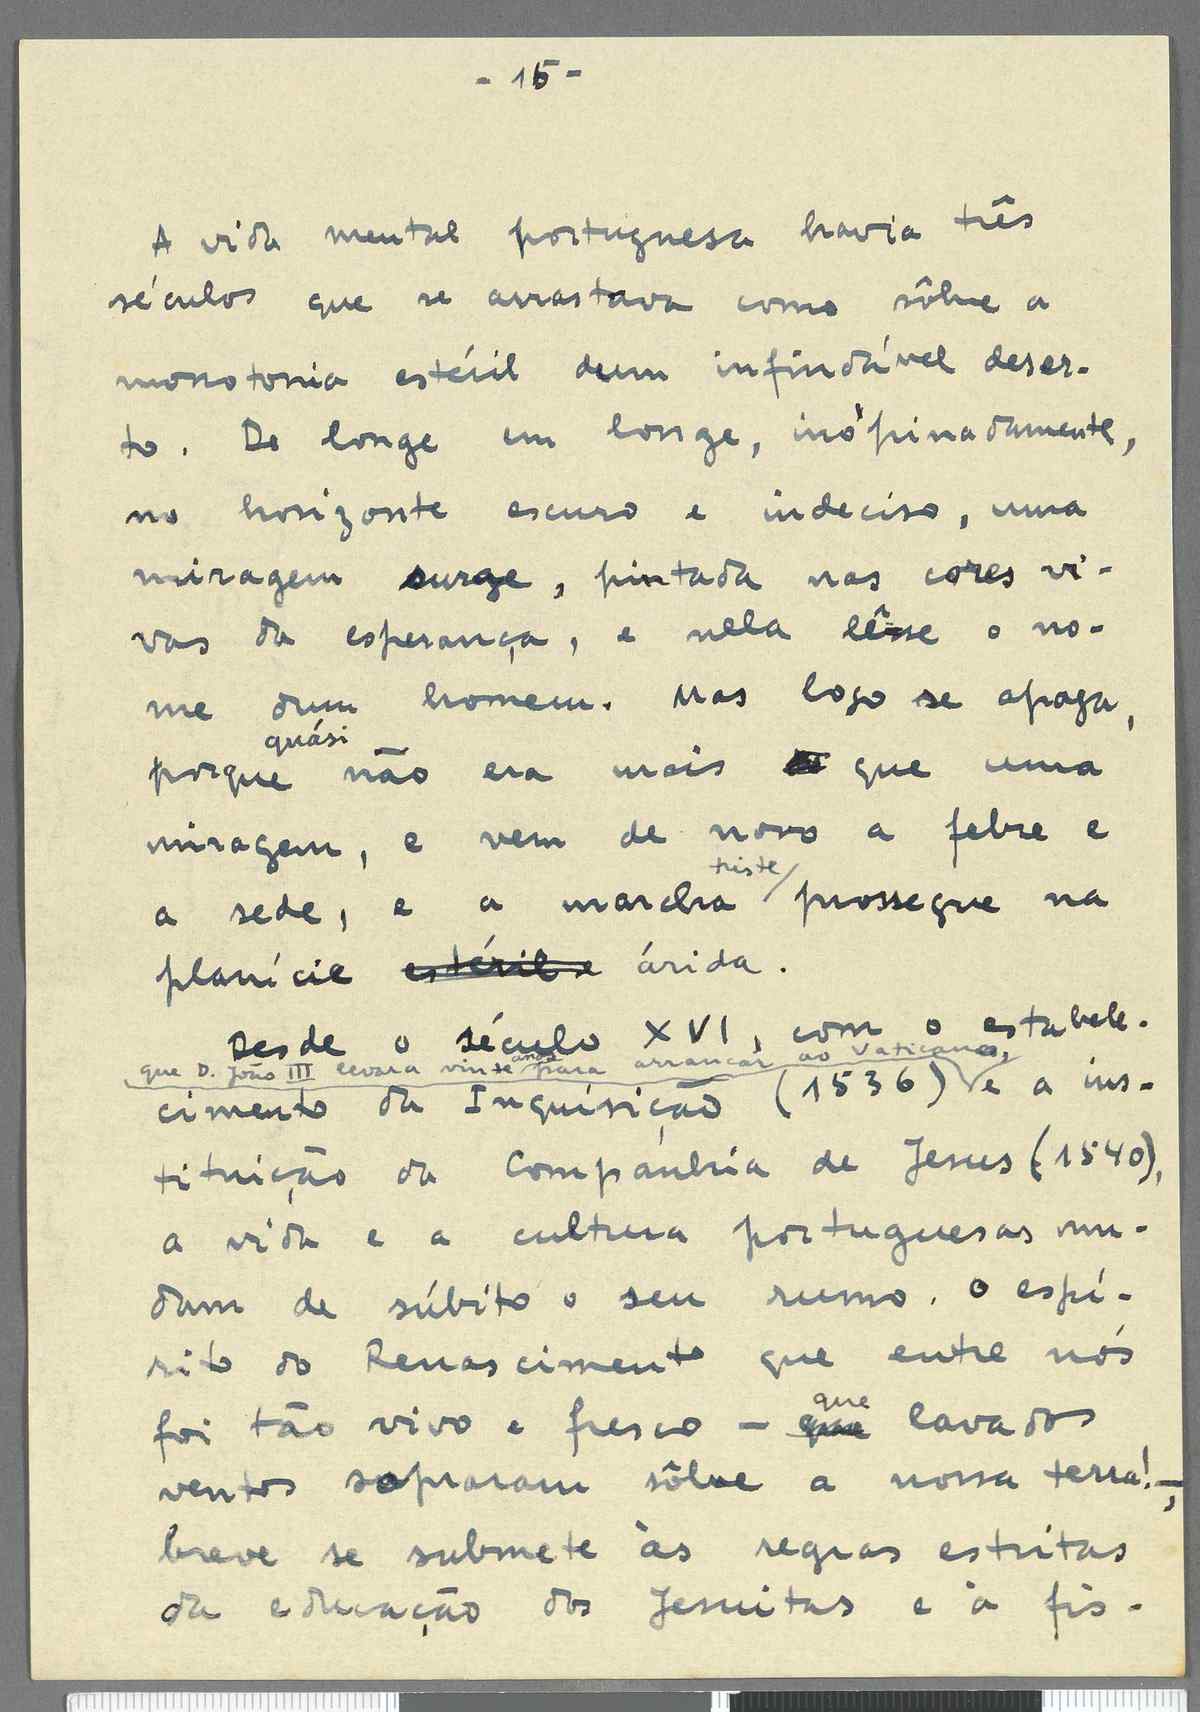 - 15 -
A vida mental portuguesa havia três
séculos que se arrastava como sôbre a
monotonia estéril dum infindável deser-
to. De longe em longe, inòpinadamente,
no horizonte escuro e indeciso, uma
miragem surge, pintada nas cores vi-
vas da esperança, e nela lê-se o no-
me dum homem. Mas logo se apaga,
quási
porque não era mais que uma
miragem, e vem de novo a febre e
triste
a sede, e a marcha prossegue na
planície estéril e árida.
Desde o século XVI, com o estabele-
que D. João III levara vinte anos para arrancar ao Vaticano,
cimento da Inquisição (1536) e a ins-
tituição da Companhia de Jesus (1540),
a vida e a cultura portuguesas mu-
dam de súbito o seu rumo. O espí-
rito do Renascimento que entre nós
foi tão vivo e fresco — que lavados
que
ventos sopraram sôbre a nossa terra! —,
breve se submete às regras estritas
da educação dos Jesuitas e à fis-